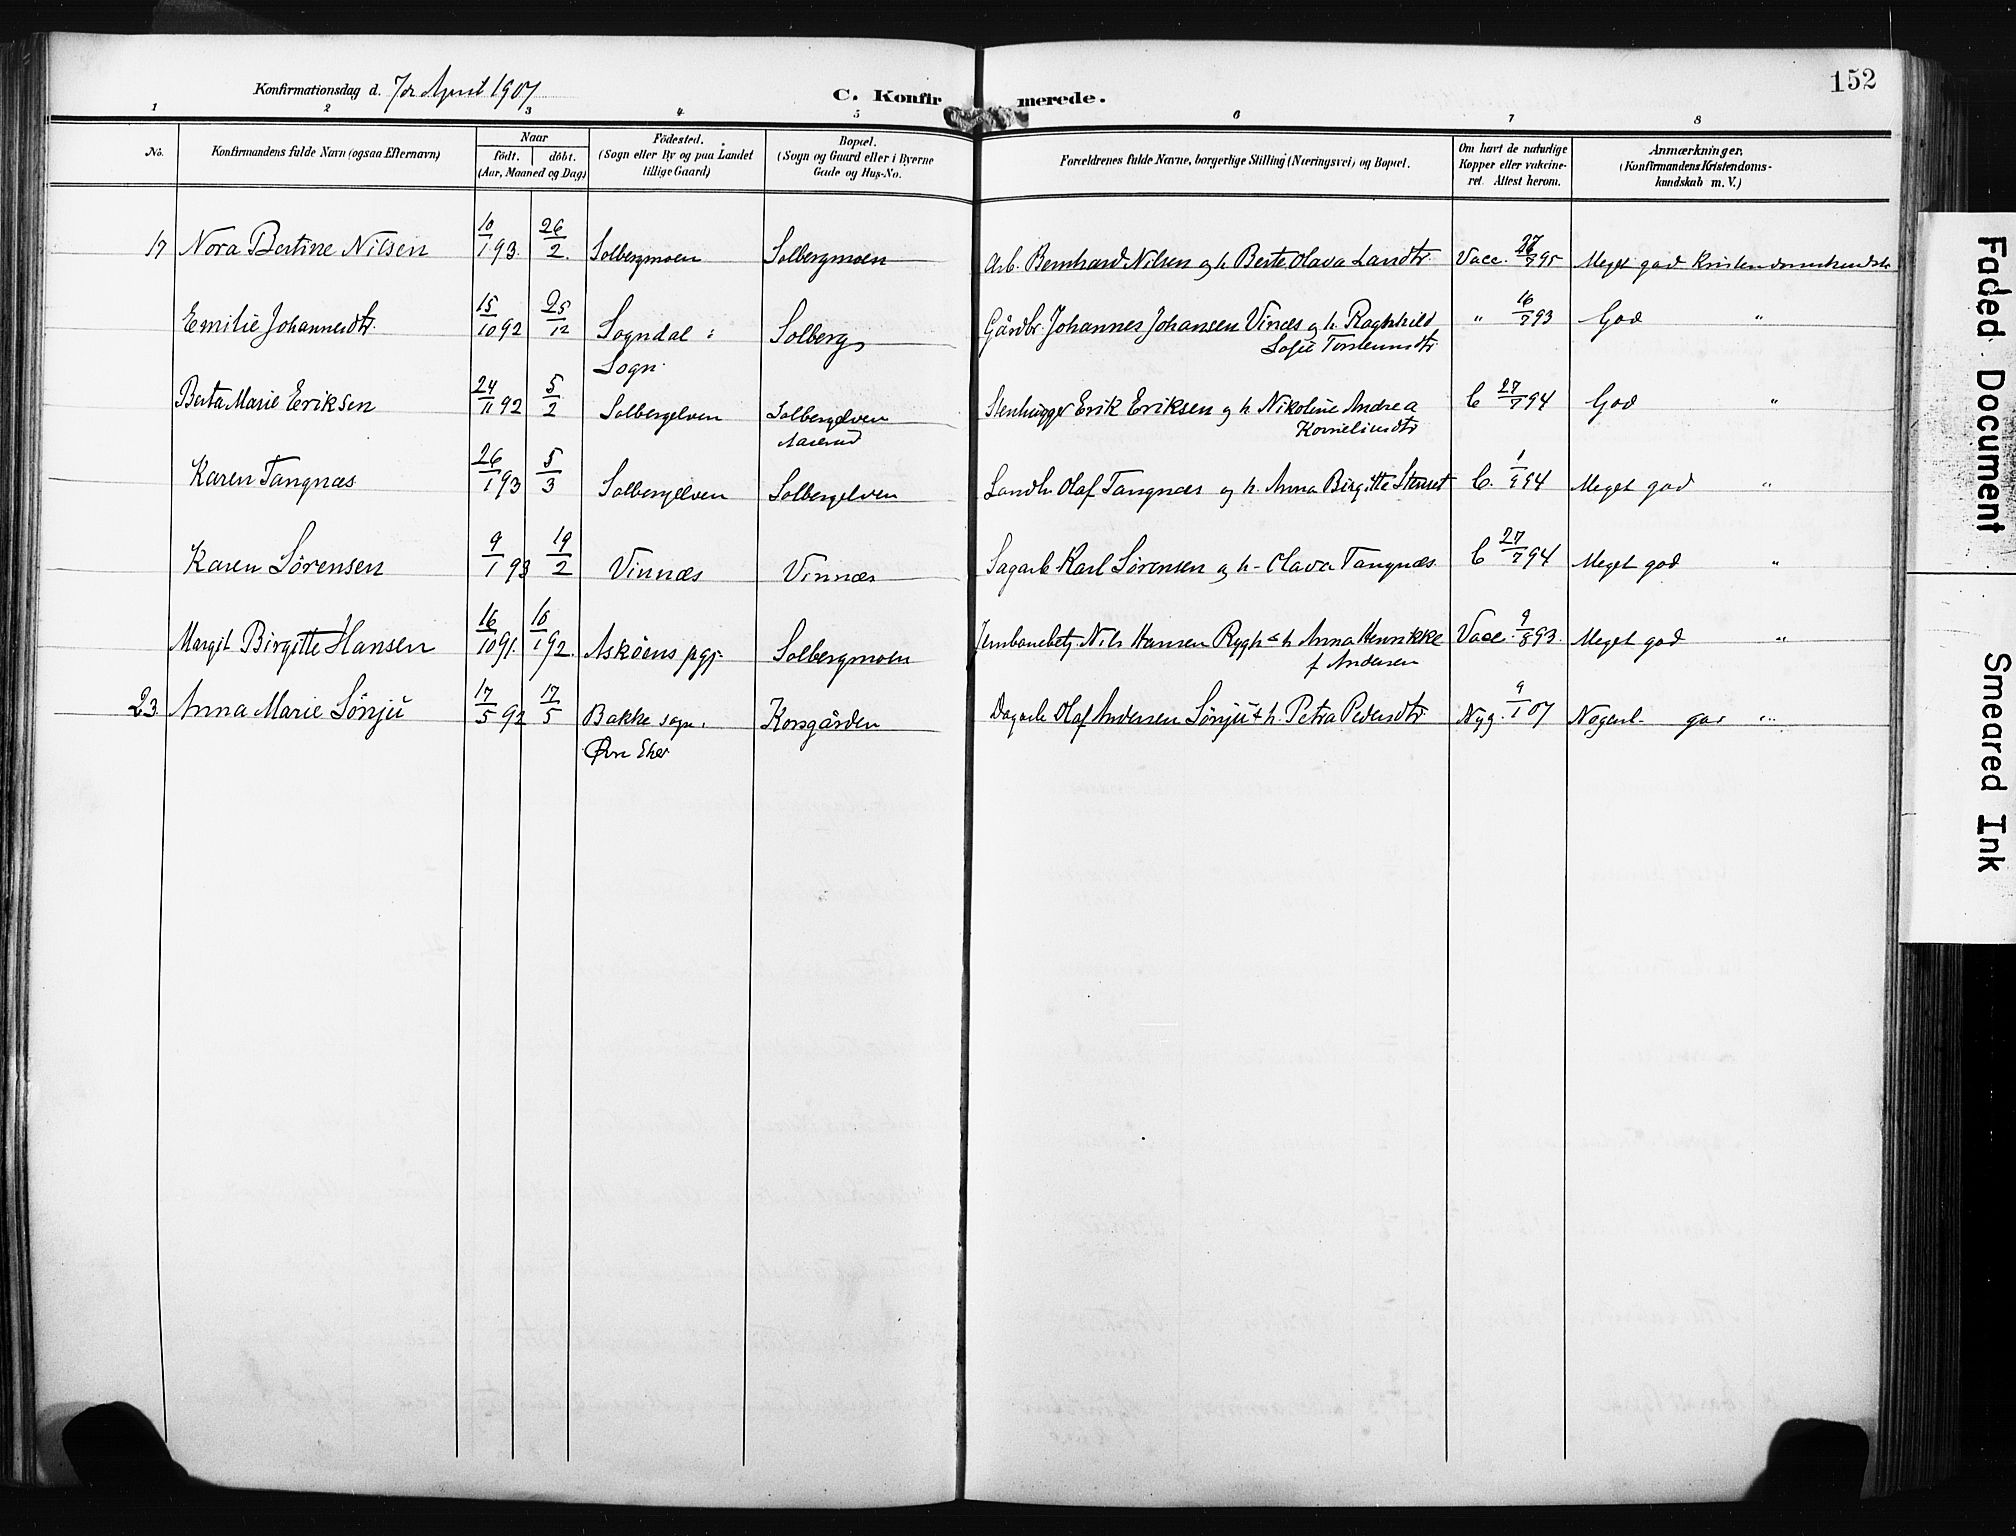 152
Konfirmationsdag d. 7de April 1907
C. Konfirmerede.
1 2 3 4 5 6 7 8
No.
Konfirmandens fulde Navn (ogsaa Efternavn)
Naar
födt. döbt.
(Aar, Maaned og Dag)
Födested.
(Sogn eller By og paa Landet
tillige Gaard)
Bopæl.
(Sogn og Gaard eller i Byerne
Gade og Hus-No.
Forældrenes fulde Navne, borgerlige Stilling (Næringsvei) og Bopæl.
Om havt de naturlige
Kopper eller vakcine-
ret. Attest herom.
Anmærkninger,
(Konfirmandens Kristendoms-
kundskab m. V.)
17 Nora Bertine Nilsen 10/1 93. 26/2. Solbergmoen Solbergmoen Arb. Bernhard Nilsen og h. Berte Olava Larsdtr. Vacc. 27/7 95 Meget god Kristendomskundsk.
Emilie Johannesdtr. 15/10 92 25/12 Sogndal i Solberg Gårdbr. Johannes Johansen Vinæs og h. Raghhild " 16/7 93 God "
Sogn.
Sofie Torstensdtr.
Berta Marie Eriksen 24/11 92 5/2 Solbergelven Solbergelven Stenhugger Erik Eriksen og h. Nikoline Andrea C 27/7 94 God "
Aaserud
Korneliusdtr
Karen Tangnæs 26/1 93 5/3 Solbergelven Solbergelven Landh. Olaf Tangnæs og h. Anna Birgitte Stenset C. 1/9 94 Meget god "
Karen Sørensen 9/1 93 19/2 Vinnæs Vinnæs Sagarb. Karl Sørensen og h. Olava Tangnæs. C 27/7 94 Meget god "
Margit Birgitte Hansen 16/10 91. 10/1 92. Askøens pgj. Solbergmoen Jernbanebetj. Nils Hansen Rygh & h. Anna Henrikke Vacc. 9/8 93. Meget god "
f. Andersen
23. Anna Marie Sönju 17/5 92 17/5 Bakke sogn. Korsgården Dagarb. Olaf Andersen Sönju & h. Petra Pedersdtr. Nyg. 9/1 07 Nogenl. god "
Øvre Eker
Faded Document
Smeared Ink